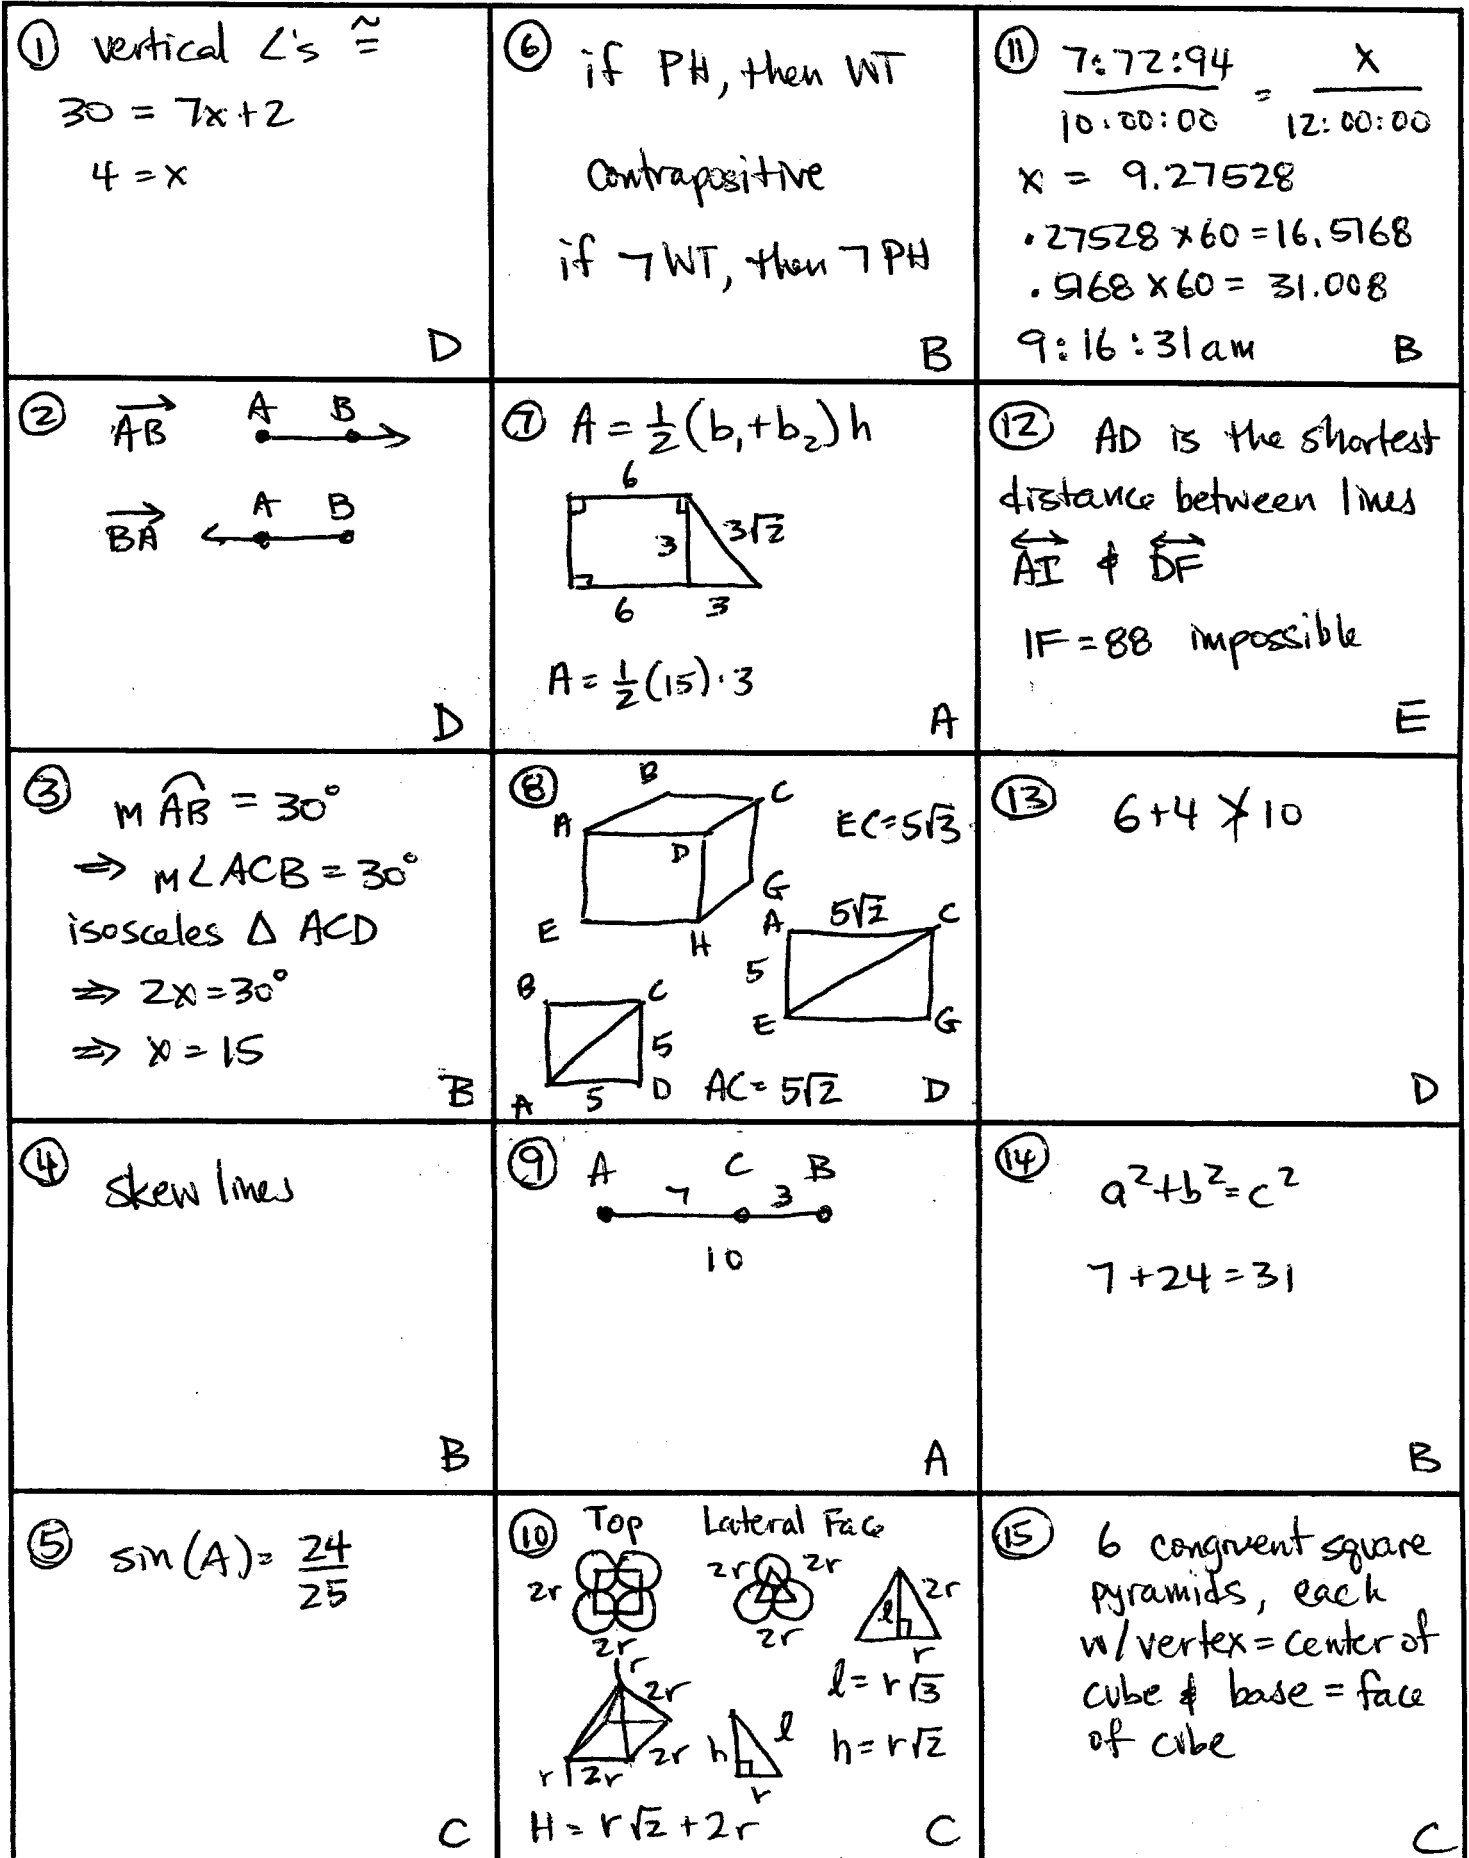 ① vertical ∠'s ≅
30 = 7x+2
4 = x
D
② AB→ A B
BA→ A B
D
③ m AB⌒ = 30°
⇒ m∠ACB = 30°
isosceles Δ ACD
⇒ 2x=30°
⇒ x = 15
B
④ skew lines
B
⑤ sin(A) = 24/25
C
⑥ if PH, then WT
Contrapositive
if ¬WT, then ¬PH
B
⑦ A = 1/2 (b₁+b₂)h
6
3 3√2
6 3
A = 1/2 (15)·3
A
⑧ B C
A D EC=5√3
G
E H
A 5√2 C
5
E G
B C
5
A 5 D AC= 5√2
D
⑨ A C B
7 3
10
A
⑩ Top Lateral Face
2r 2r 2r 2r
2r 2r r
l
l = r√3
r 2r
h l h = r√2
r 2r 2r r
H = r√2 + 2r
C
⑪ 7:72:94/10:00:00 = x/12:00:00
x = 9.27528
.27528 x60 = 16.5168
.5168 x 60 = 31.008
9:16:31am
B
⑫ AD is the shortest
distance between lines
AI↔ & DF↔
IF = 88 impossible
E
⑬ 6+4 ≯ 10
D
⑭ a²+b²=c²
7+24=31
B
⑮ 6 congruent square
pyramids, each
w/vertex = center of
cube & base = face
of cube
C